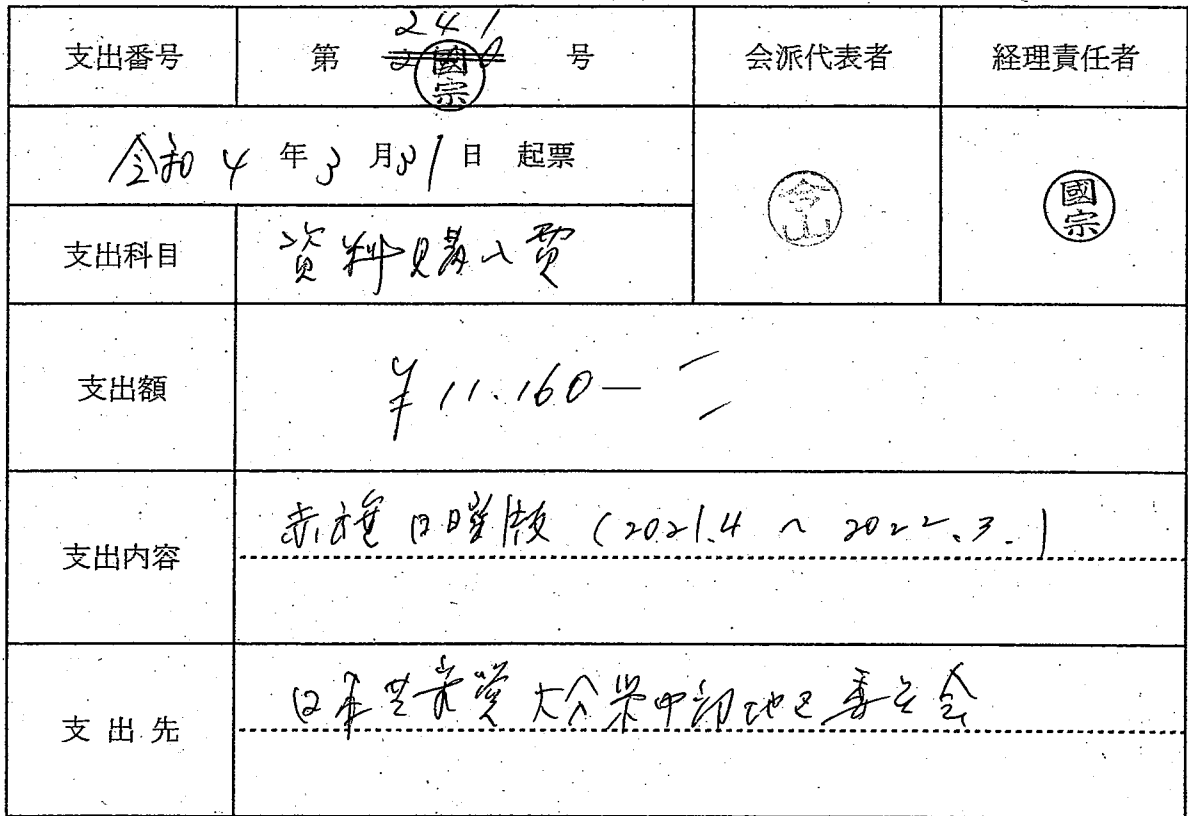 241
支出番号 第 号 会派代表者 経理責任者
國宗
令和4年3月31日 起票
令山
國宗
支出科目 資料購入費
支出額 ¥11.160―
支出内容 赤旗日曜版 (2021.4 ~ 2022.3.)
支出先 日本共産党大分県中部地区委員会